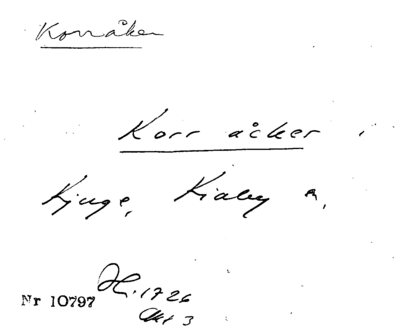 Korråker
Korr åcker,
Kjuge, Kiaby s,
Nr 10797 H. 1726
Akt 3